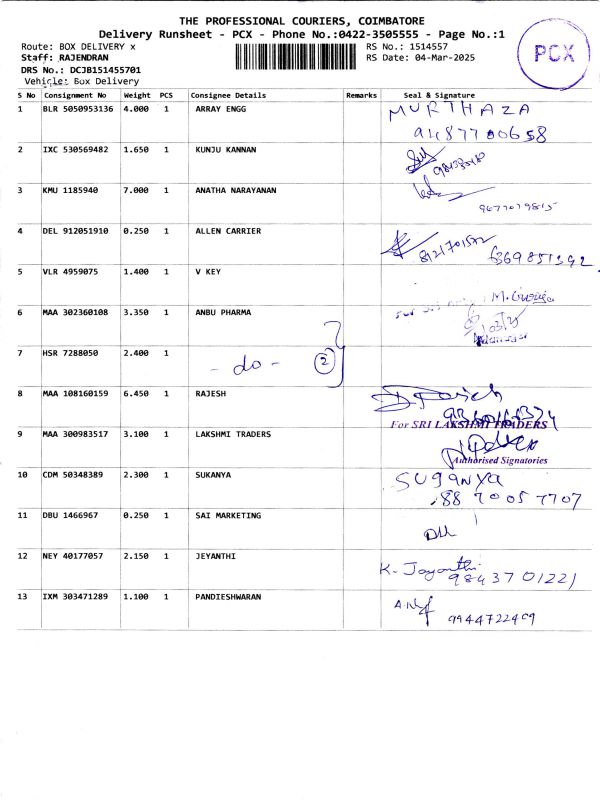 THE PROFESSIONAL COURIERS, COIMBATORE
Delivery Runsheet - PCX - Phone No.:0422-3505555 - Page No.:1
Route: BOX DELIVERY x RS No.: 1514557
Staff: RAJENDRAN RS Date: 04-Mar-2025
DRS No.: DCJB151455701
Vehicle: Box Delivery
PCX
S No Consignment No Weight PCS Consignee Details Remarks Seal & Signature
1 BLR 5050953136 4.000 1 ARRAY ENGG MURTHAZA
9487700658
2 IXC 530569482 1.650 1 KUNJU KANNAN
3 KMU 1185940 7.000 1 ANATHA NARAYANAN
9677079815
4 DEL 912051910 0.250 1 ALLEN CARRIER
6369851392
5 VLR 4959075 1.400 1 V KEY
6 MAA 302360108 3.350 1 ANBU PHARMA
7 HSR 7288050 2.400 1
- do - 2
8 MAA 108160159 6.450 1 RAJESH
For SRI LAKSHMI TRADERS
9 MAA 300983517 3.100 1 LAKSHMI TRADERS
Authorised Signatories
10 CDM 50348389 2.300 1 SUKANYA SUGANYA
88 70057707
11 DBU 1466967 0.250 1 SAI MARKETING
12 NEY 40177057 2.150 1 JEYANTHI K. Jayanthi
9843701221
13 IXM 303471289 1.100 1 PANDIESHWARAN
9944722409